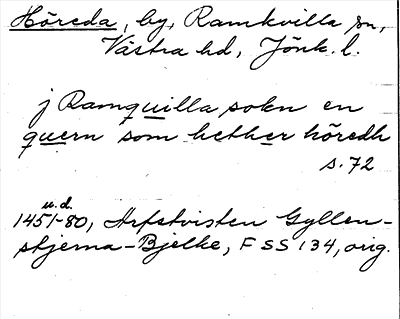 Höreda, by, Ramkvilla sn,
Västra hd, Jönk. l.
j Ramquilla sokn en
quern som hether höredh
s. 72
u.d.
1451-80, Arfstvisten Gyllen-
stjerna-Bjelke, FSS 134, orig.